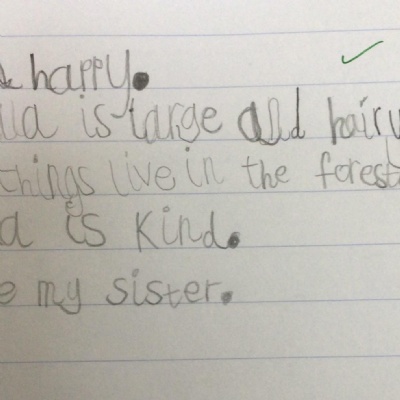 happy.
is large and hairy
things live in the forest
is kind.
my sister.